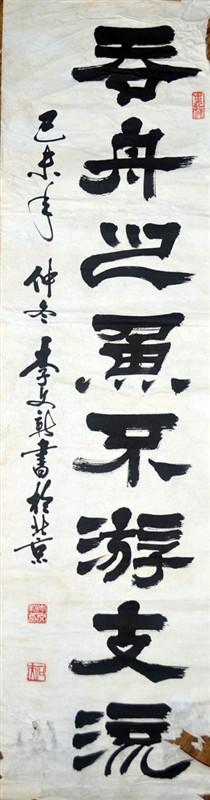 吞舟之魚不游支流
己未年 仲冬 李文新書於北京